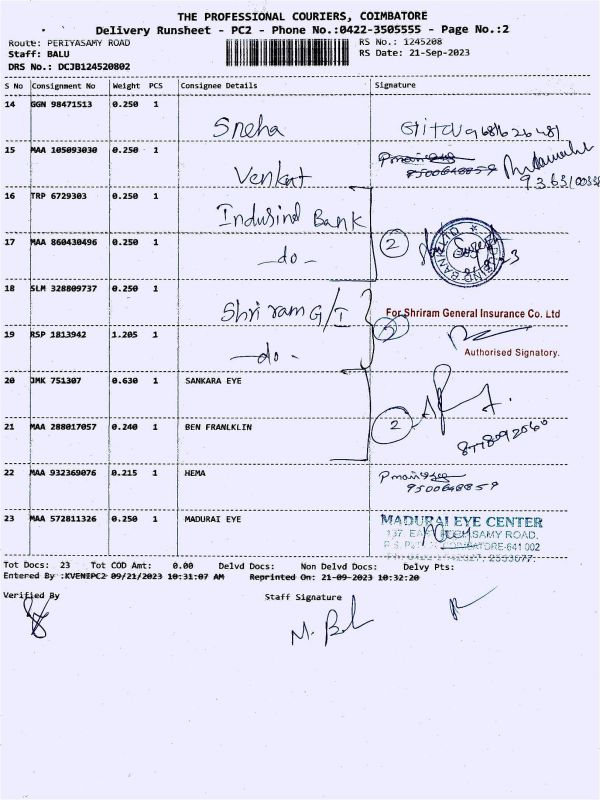 THE PROFESSIONAL COURIERS, COIMBATORE
Delivery Runsheet - PC2 - Phone No.:0422-3505555 - Page No.:2
Route: PERIYASAMY ROAD RS No.: 1245208
Staff: BALU RS Date: 21-Sep-2023
DRS No.: DCJB124520802
S No Consignment No Weight PCS Consignee Details Signature
14 GGN 98471513 0.250 1
Sneha
15 MAA 105093030 0.250 1
9500648859
Venkat
16 TRP 6729303 0.250 1
Indusind Bank
17 MAA 860430496 0.250 1
-do- 2
18 SLM 328809737 0.250 1
Shri ram G/I For Shriram General Insurance Co. Ltd
19 RSP 1813942 1.205 1
-do- Authorised Signatory.
20 JMK 751307 0.630 1 SANKARA EYE
21 MAA 288017057 0.240 1 BEN FRANLKLIN 2
22 MAA 932369076 0.215 1 HEMA
9500648859
23 MAA 572811326 0.250 1 MADURAI EYE MADURAI EYE CENTER
137 EAST PERIASAMY ROAD,
COIMBATORE-641 002
Tot Docs: 23 Tot COD Amt: 0.00 Delvd Docs: Non Delvd Docs: Delvy Pts:
Entered By :KVENIPC2 09/21/2023 10:31:07 AM Reprinted On: 21-09-2023 10:32:20
Verified By Staff Signature